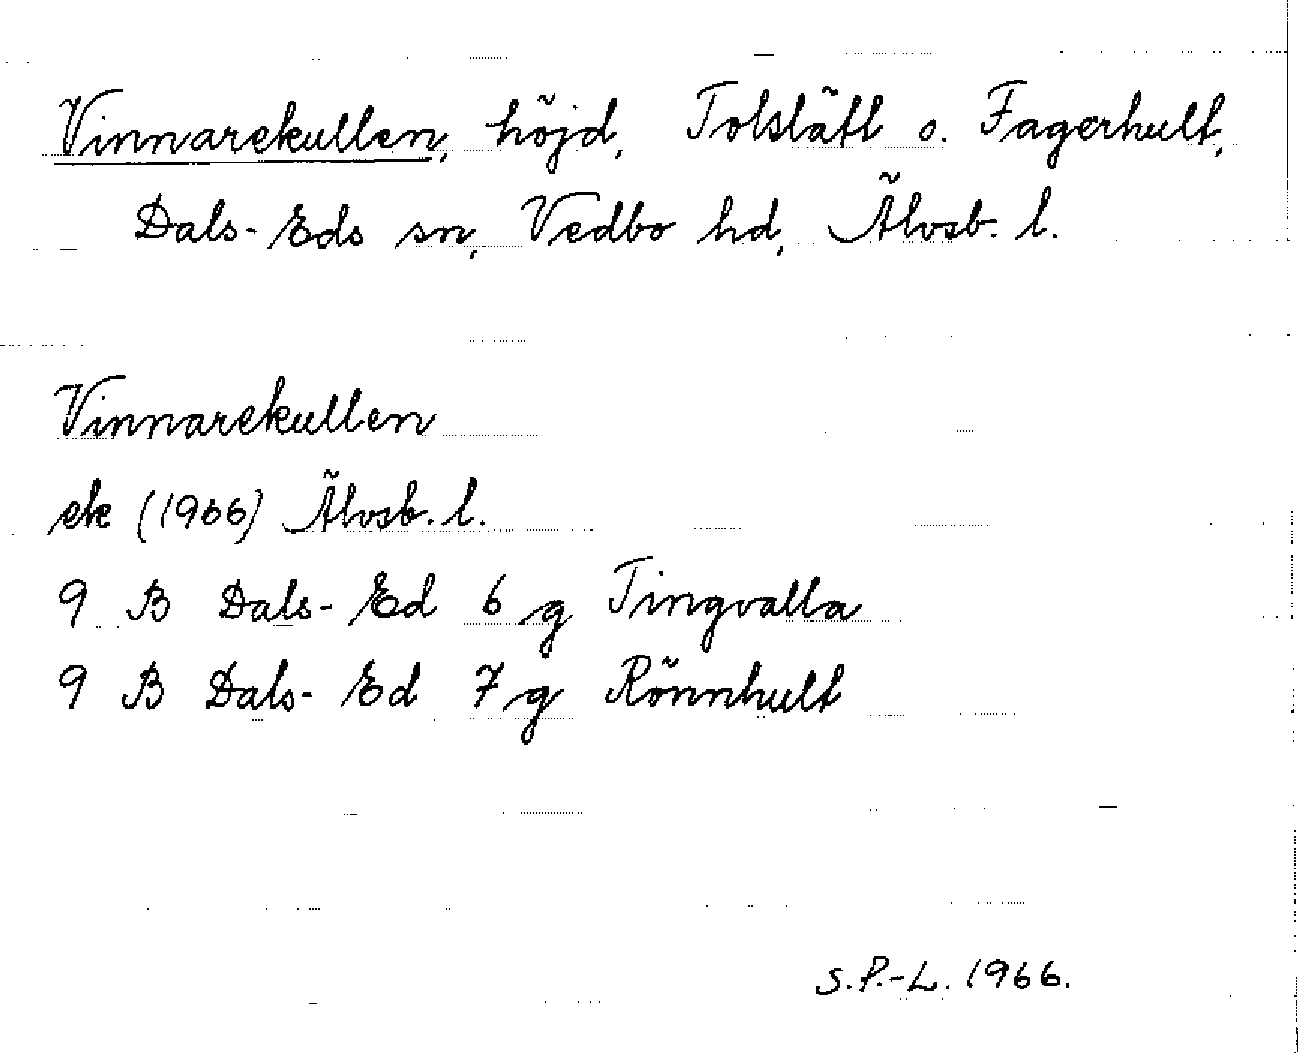 Vinnarekullen, höjd, Tolslätt o. Fagerhult,
Dals-Eds sn, Vedbo hd, Älvsb. l.
Vinnarekullen
ek (1966) Älvsb. l.
9 B Dals-Ed 6 g Tingvalla
9 B Dals-Ed 7 g Rönnhult
S.P.-L. 1966.